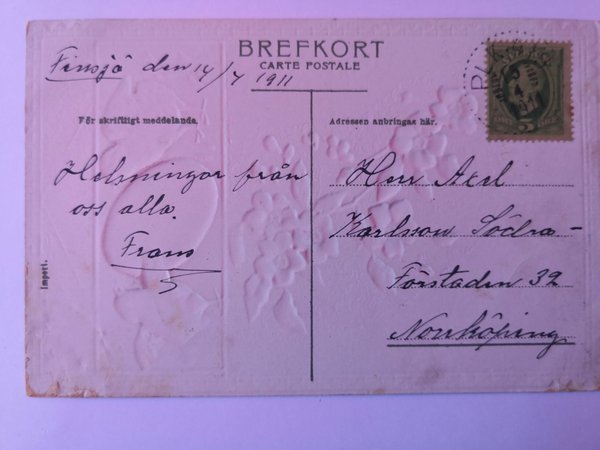 BREFKORT
CARTE POSTALE
Finsjö den 14/7 1911
För skriftligt meddelande.
Adressen anbringas här.
Helsningar från
oss alla.
Frans
Herr Axel
Karlsson Södra-
Förstaden 32
Norrköping
Import.
5